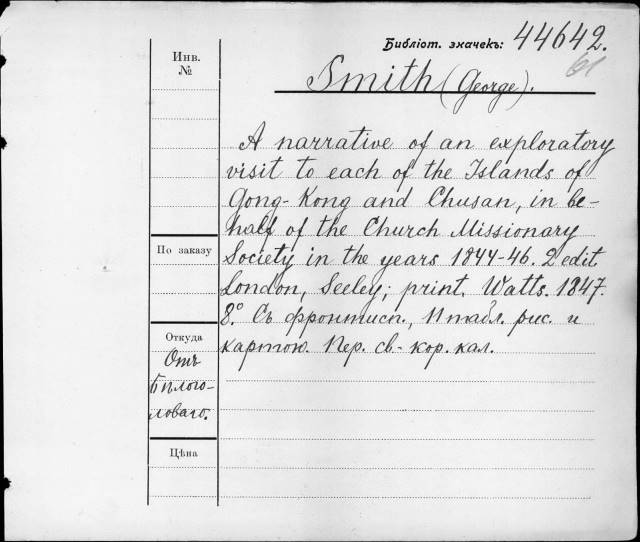 Библіот. значекъ: 44642.
61
Инв.
№
Smith (George).
A narrative of an exploratory
visit to each of the Islands of
Gong-Kong and Chusan, in be-
half of the Church Missionary
Society in the years 1844-46. 2 edit
London, Seeley; print. Watts. 1847.
8.° Съ фронтисп., 11 табл. рис. и
картою. Пер. св-кор. кал.
По заказу
Откуда
Отъ
Бѣлого-
ловаго.
Цѣна